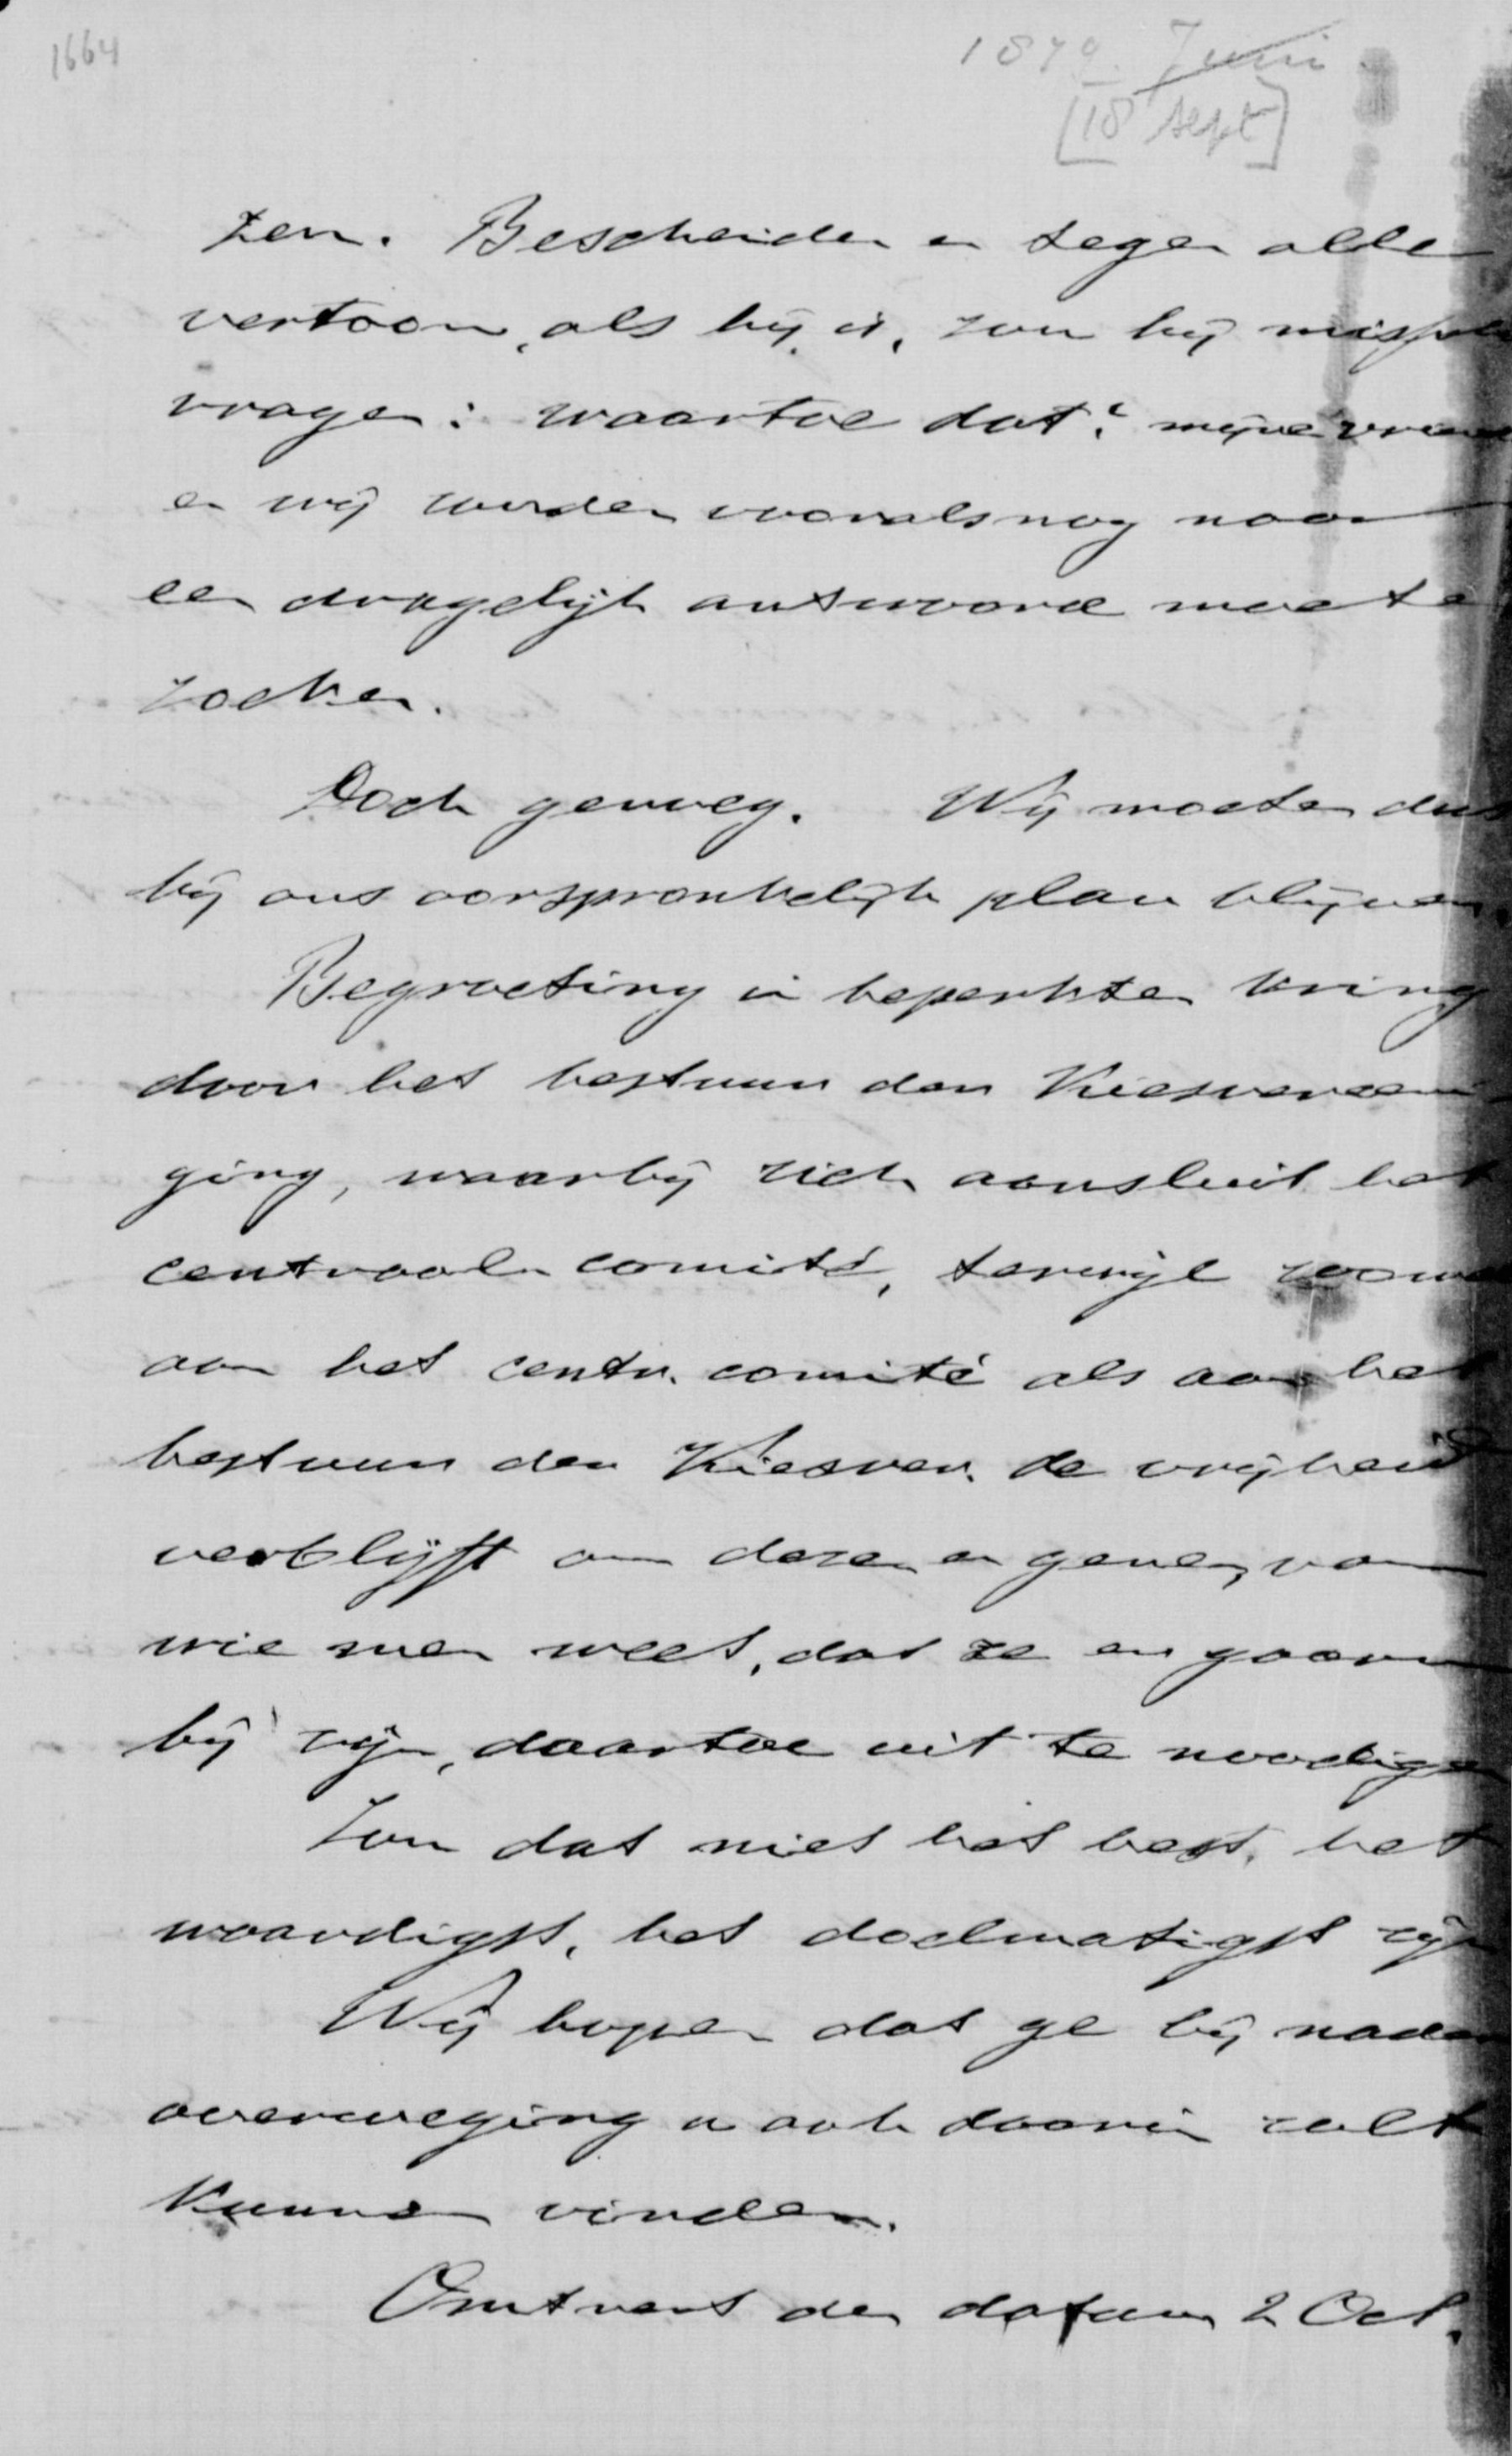 1664
1879 Juni
[18 Sept]
zen. Bescheiden en tegen alle
vertoon, als hij is, zou hij
vragen: waartoe dat? mijne
en wij zouden vooralsnog naar
een dragelijk antwoord moeten
zoeken.
Doch genoeg. Wij moeten dus
bij ons oorspronkelijk plan blijven.
Begroeting in beperkten kring
door het bestuur der Kiesvereeni
ging, waarbij zich aansluit het
centraal comité, terwijl zoowel
aan het centr. comité als aan het
bestuur der Kiesver. de vrijheid
verblijft om dezen en genen, van
wie men weet, dat ze er gaarne
bij zijn, daartoe uit te noodigen
Zou dat niet het best, het
waardigst, het doelmatigst zijn
Wij hopen dat ge bij nader
overweging u ook daarin zult
kunnen vinden.
Omtrent den datum 2 Oct.